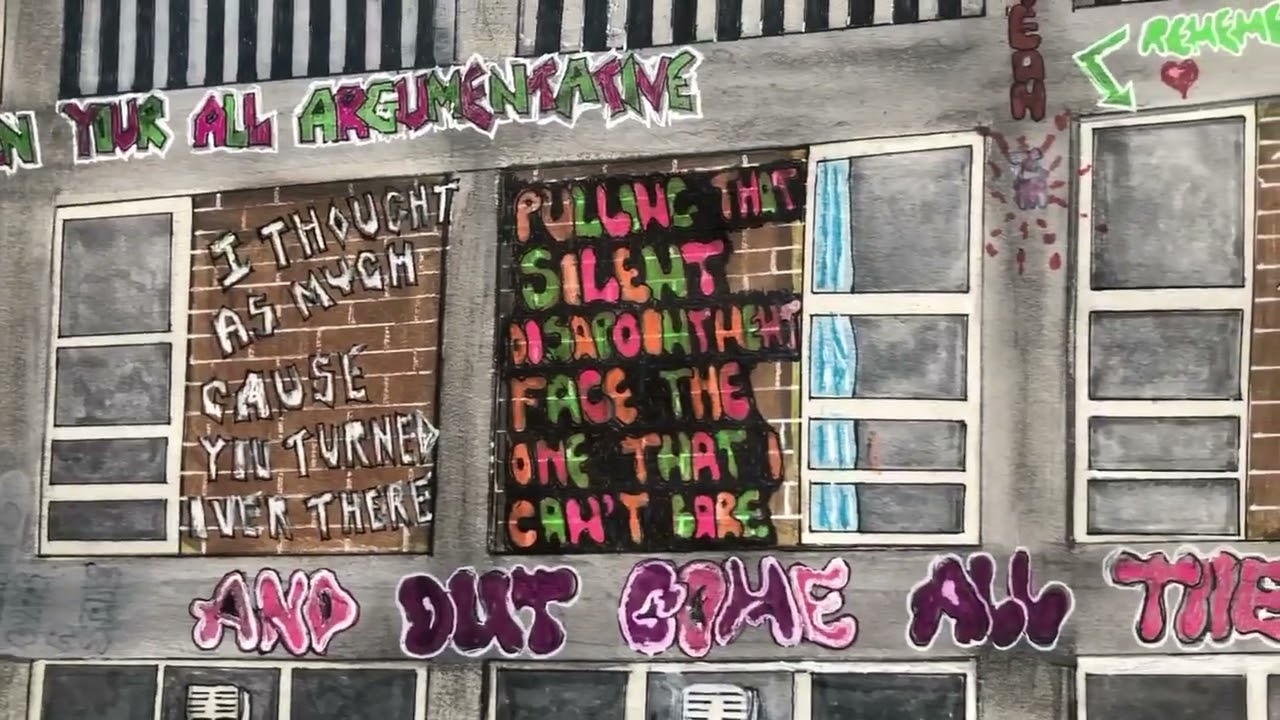 YOUR ALL ARGUMENTATIVE
REMEM
I THOUGHT
AS MUCH
CAUSE
YOU TURNED
OVER THERE
PULLING THAT
SILENT
DISAPOINTMENT
FACE THE
ONE THAT I
CAN'T BARE
AND OUT COME ALL THE